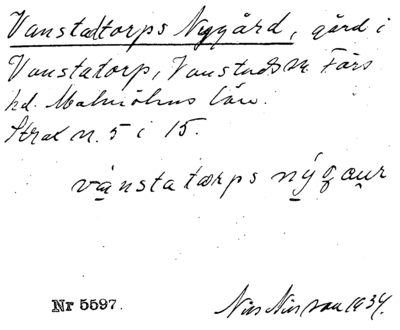 Vanstatorps Nygård, gård i
Vanstatorp, Vanstads sn. Färs
hd. Malmöhus län.
Strax n. 5 i 15.
vànsta tærps nýgaur
Nr 5597. Nils Nilsson 1934.